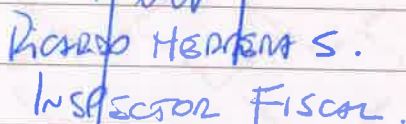 RICARDO HERRERA S.
INSPECTOR FISCAL.